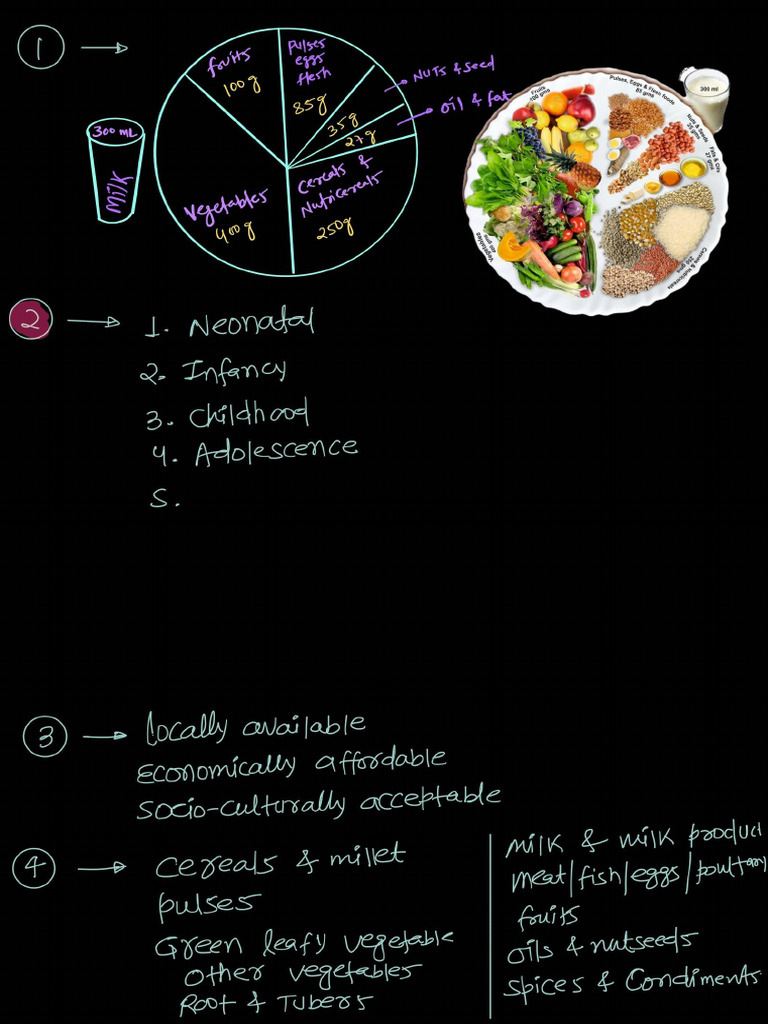 1
fruits
100 g
Pulses
eggs
flesh
85g
Nuts & seed
35g
oil & fat
27g
300 mL
Milk
Vegetables
400g
Cereals &
Nutricereals
250g
Fruits
100 gms
Pulses, Eggs & Flesh foods
85 gms
300 ml
Nuts & Seeds
35 gms
Fats & Oils
27 gms
Vegetables
400 gms
Cereals & Nutricereals
250 gms
2
1. Neonatal
2. Infancy
3. Childhood
4. Adolescence
5.
3
locally available
Economically affordable
Socio-culturally acceptable
4
Cereals & millet
pulses
Green leafy vegetable
other vegetables
Root & Tubers
milk & milk product
meat/fish/eggs/poultary
fruits
oils & nutseeds
spices & Condiments